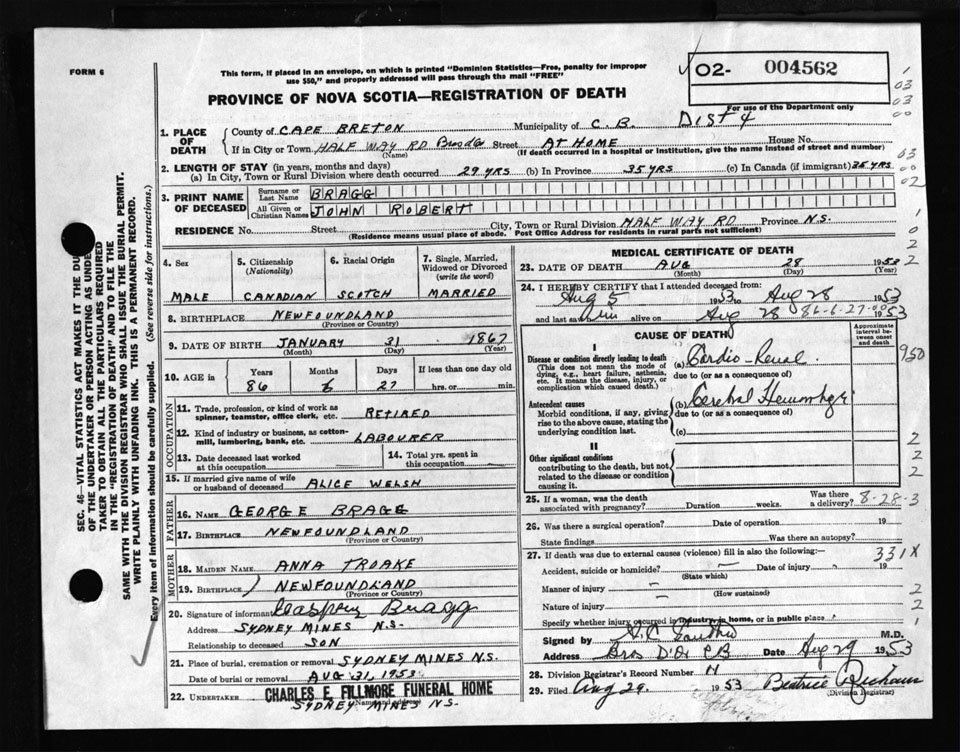 FORM 6
This form, if placed in an envelope, on which is printed "Dominion Statistics—Free, penalty for improper
use $50," and properly addressed will pass through the mail "FREE"
02- 004562
For use of the Department only
PROVINCE OF NOVA SCOTIA—REGISTRATION OF DEATH
1. PLACE OF DEATH
County of CAPE BRETON Municipality of C.B. DIST 4
If in City or Town HALF WAY RD Street AT HOME House No.
(Name) (If death occurred in a hospital or institution, give the name instead of street and number)
2. LENGTH OF STAY (in years, months and days)
(a) In City, Town or Rural Division where death occurred 29 YRS (b) In Province 35 YRS (c) In Canada (if immigrant) 35 YRS
3. PRINT NAME OF DECEASED
Surname or Last Name BRAGG
All Given or Christian Names JOHN ROBERT
RESIDENCE No. Street City, Town or Rural Division HALF WAY RD Province N.S.
(Residence means usual place of abode. Post Office Address for residents in rural parts not sufficient)
4. Sex
MALE
5. Citizenship (Nationality)
CANADIAN
6. Racial Origin
SCOTCH
7. Single, Married, Widowed or Divorced (write the word)
MARRIED
8. BIRTHPLACE NEWFOUNDLAND
(Province or Country)
9. DATE OF BIRTH JANUARY 31 1867
(Month) (Day) (Year)
10. AGE in Years Months Days If less than one day old
86 6 27 hrs. or min.
OCCUPATION
11. Trade, profession, or kind of work as spinner, teamster, office clerk, etc. RETIRED
12. Kind of industry or business, as cotton-mill, lumbering, bank, etc. LABOURER
13. Date deceased last worked at this occupation
14. Total yrs. spent in this occupation
15. If married give name of wife or husband of deceased ALICE WELSH
FATHER
16. NAME GEORGE BRAGG
17. BIRTHPLACE NEWFOUNDLAND
(Province or Country)
MOTHER
18. MAIDEN NAME ANNA TROAKE
19. BIRTHPLACE NEWFOUNDLAND
(Province or Country)
20. Signature of informant Bragg
Address SYDNEY MINES N.S.
Relationship to deceased SON
21. Place of burial, cremation or removal SYDNEY MINES N.S.
Date of burial or removal AUG 31, 1953
22. UNDERTAKER CHARLES E. FILLMORE FUNERAL HOME
(Name and address)
SYDNEY MINES N.S.
MEDICAL CERTIFICATE OF DEATH
23. DATE OF DEATH AUG 28 1953
(Month) (Day) (Year)
24. I HEREBY CERTIFY that I attended deceased from:
Aug 5 1953 to Aug 28 1953
and last saw him alive on Aug 28 86-6-27 1953
CAUSE OF DEATH
Approximate interval between onset and death
I
Disease or condition directly leading to death (a) Cardio-Renal
(This does not mean the mode of dying, e.g., heart failure, asthenia, etc. It means the disease, injury, or complication which caused death.)
due to (or as a consequence of)
950
Antecedent causes
Morbid conditions, if any, giving rise to the above cause, stating the underlying condition last.
(b) Cerebral Hemorrhage
due to (or as a consequence of)
(c)
II
Other significant conditions
contributing to the death, but not related to the disease or condition causing it.
25. If a woman, was the death associated with pregnancy? Duration weeks. Was there a delivery? 8-28-3
26. Was there a surgical operation? Date of operation 19
State findings Was there an autopsy?
27. If death was due to external causes (violence) fill in also the following:— 331X
Accident, suicide or homicide? Date of injury 19
(State which)
Manner of injury
(How sustained)
Nature of injury
Specify whether injury occurred in industry, in home, or in public place
Signed by M.D.
Address Bras D'Or CB Date Aug 29 1953
28. Division Registrar's Record Number
29. Filed Aug 29. 1953 Beatrice
(Division Registrar)
SEC. 46—VITAL STATISTICS ACT MAKES IT THE DU
OF THE UNDERTAKER OR PERSON ACTING AS UNDE
TAKER TO OBTAIN ALL THE PARTICULARS REQUIRED
IN THE "REGISTRATION OF DEATH" AND TO FILE THE
SAME WITH THE DIVISION REGISTRAR WHO SHALL ISSUE THE BURIAL PERMIT.
WRITE PLAINLY WITH UNFADING INK. THIS IS A PERMANENT RECORD.
Every item of information should be carefully supplied. (See reverse side for instructions.)